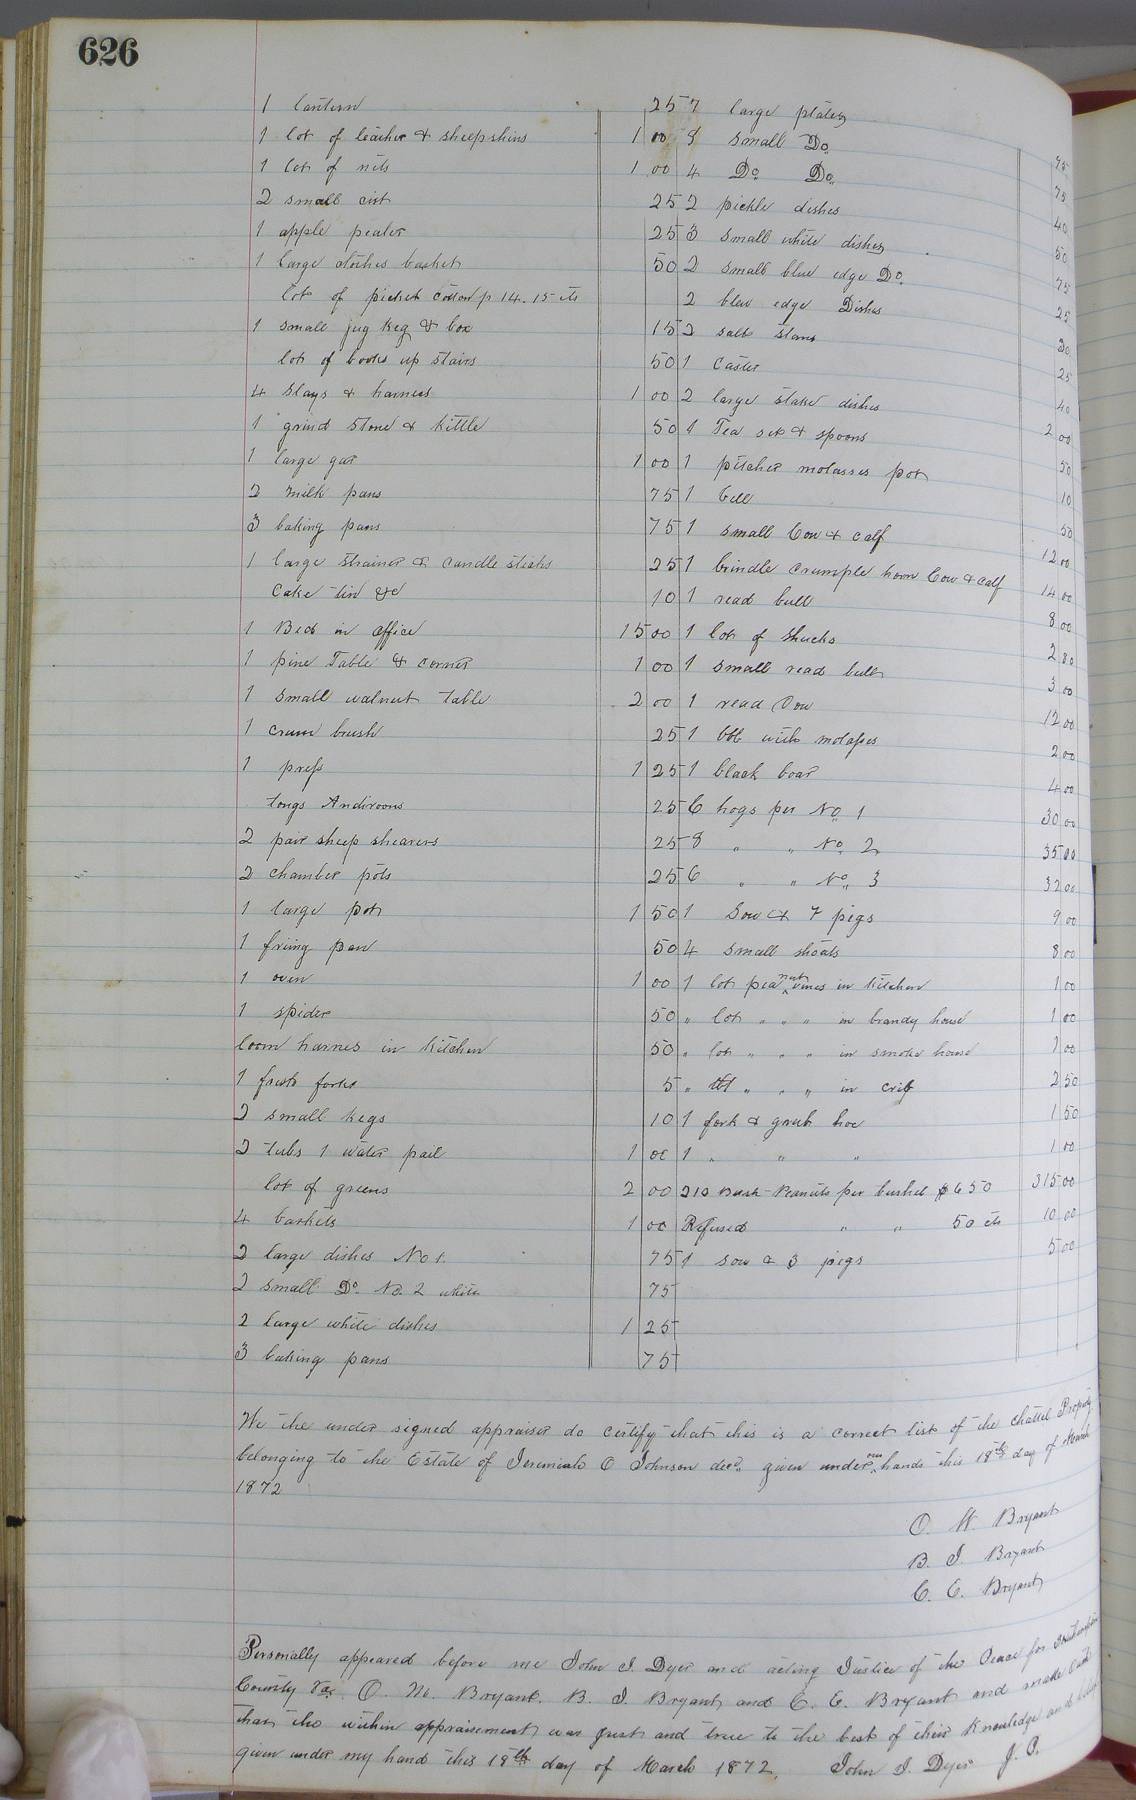 626
1 lantern 25
1 lot of leather & sheepskins 1 00
1 lot of nits 1 00
2 small cist 25
1 apple pealer 25
1 large clothes basket 50
lot of picket cotton p 14.15 cts
1 small jug keg & box 15
lot of books up stairs 50
4 slays & harness 1 00
1 grind stone & kittle 50
1 large gar 1 00
2 milk pans 75
3 baking pans 75
1 large strainer & candle sticks 25
Cake tin &c 10
1 Bed in office 15 00
1 pine Table & corner 1 00
1 small walnut table 2 00
1 crum brush 25
1 press 1 25
tongs Andiroons 25
2 pair sheep shearers 25
2 chamber pots 25
1 large pot 1 50
1 friing pan 50
1 oven 1 00
1 spider 50
loom harnes in kitchen 50
1 forks 5
2 small kegs 10
2 tubs 1 water pail 1 00
lot of greens 2 00
4 baskets 1 00
2 large dishes No 1. 75
2 small Do. No. 2 white 75
2 large white dishes 1 25
3 baking pans 75
7 large plates 75
8 small Do 75
4 Do Do 40
2 pickle dishes 50
3 small white dishes 75
2 small blue edge Do. 25
2 blew edge Dishes 30
2 salt stans 25
1 Caster 40
2 large stake dishes 2 00
1 Tea set & spoons 50
1 pitcher molasses pot 10
1 bell 50
1 small Cow & calf 12 00
1 brindle crumple horn Cow & calf 14 00
1 read bull 8 00
1 lot of shucks 2 80
1 small read bull 3 00
1 read Cow 12 00
1 bbl with molasses 2 00
1 black boar 4 00
6 hogs per No 1 30 00
8 " " No. 2 35 00
6 " " No. 3 32 00
1 Sow & 7 pigs 9 00
4 small shoats 8 00
1 lot pea nut vines in kitchen 1 00
" lot " " " in brandy house 1 00
" lot " " " in smoke house 1 00
" " " " in crib 2 50
1 fork & grub hoe 1 50
1 " " " 1 00
210 Bush Peanuts per bushel $ 50 315 00
Refused " " 50 cts 10 00
1 sow & 3 pigs 5 00
We the under signed appraiser do certify that this is a correct list of the chattel Property
belonging to the Estate of Jeremiah O Johnson decd. given under our hands this 18th day of March
1872
O. M. Bryant
B. J. Bryant
C. E. Bryant
Personally appeared before me John J. Dyer and acting Justice of the Peace for Southampton
County Va. O. M. Bryant. B. J. Bryant, and C. E. Bryant and made oath
that the within appraisement was just and true to the best of their knowledge and belief
given under my hand this 18th day of March 1872. John J. Dyer J. P.